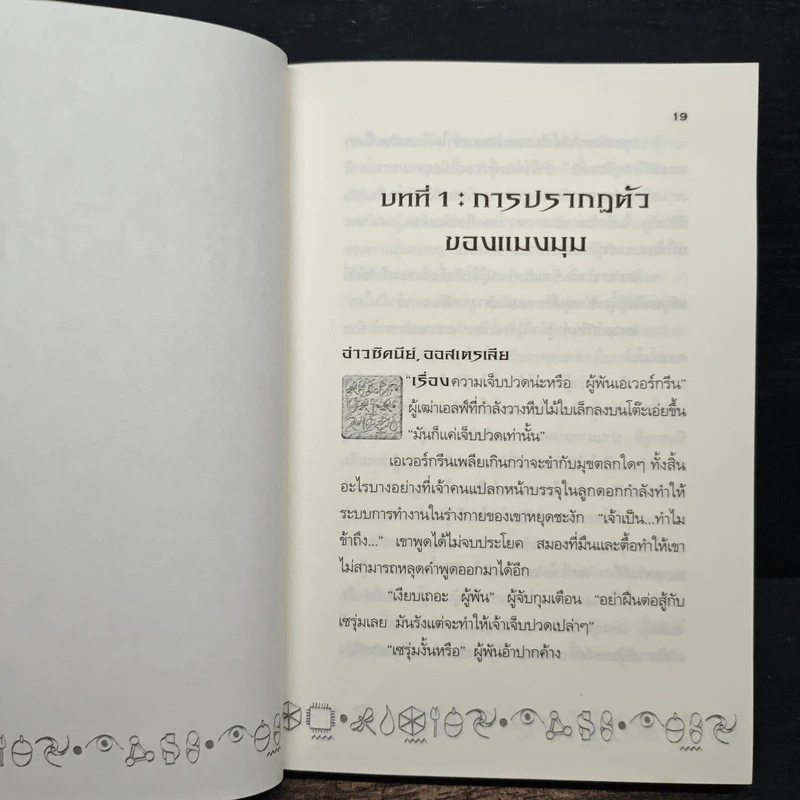 19
บทที่ 1 : การปรากฏตัว
ของแมงมุม
อ่าวซิดนีย์, ออสเตรเลีย
“เรื่องความเจ็บปวดน่ะหรือ ผู้พันเอเวอร์กรีน”
ผู้เฒ่าเอลฟ์ที่กำลังวางหีบไม้ใบเล็กลงบนโต๊ะเอ่ยขึ้น
“มันก็แค่เจ็บปวดเท่านั้น”
เอเวอร์กรีนเพลียเกินกว่าจะขำกับมุขตลกใดๆ ทั้งสิ้น
อะไรบางอย่างที่เจ้าคนแปลกหน้าบรรจุในลูกดอกกำลังทำให้
ระบบการทำงานในร่างกายของเขาหยุดชะงัก “เจ้าเป็น...ทำไม
ข้าถึง...” เขาพูดได้ไม่จบประโยค สมองที่มึนและตื้อทำให้เขา
ไม่สามารถหลุดคำพูดออกมาได้อีก
“เงียบเถอะ ผู้พัน” ผู้จับกุมเตือน “อย่าฝืนต่อสู้กับ
เซรุ่มเลย มันรังแต่จะทำให้เจ้าเจ็บปวดเปล่าๆ”
“เซรุ่มงั้นหรือ” ผู้พันอ้าปากค้าง